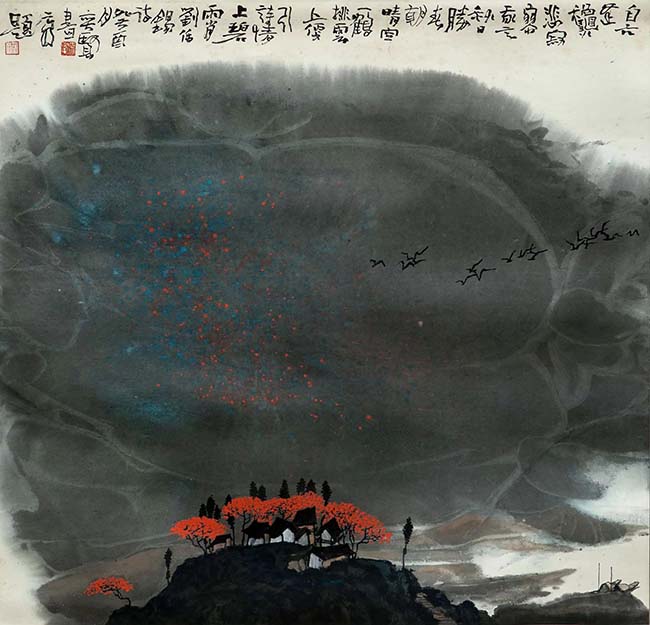 自古
逢
龝
悲寂
寥
我言
秋日
勝
春
朝
晴空
一鶴
排雲
上便
引
詩情
上碧
霄
劉禹
錫
詩
癸酉
秋
題